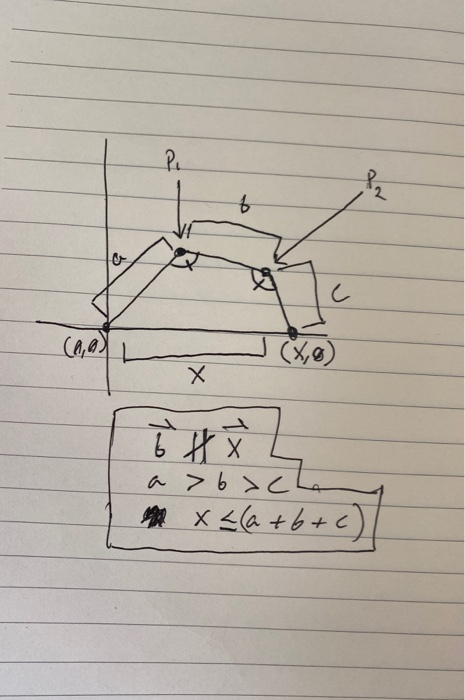 P₁
P₂
b
a
α
α
c
(0,0)
(x,0)
x
b⃗ ∦ x⃗
a > b > c
x ≤ (a + b + c)